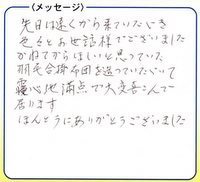 (メッセージ)
先日は遠くから来ていただき
色々とお世話様でございました
かねてからほしいと思っていた
羽毛合掛布団を送っていただいて
寝心地満点で大変喜こんで
居ります
ほんとうにありがとうございました